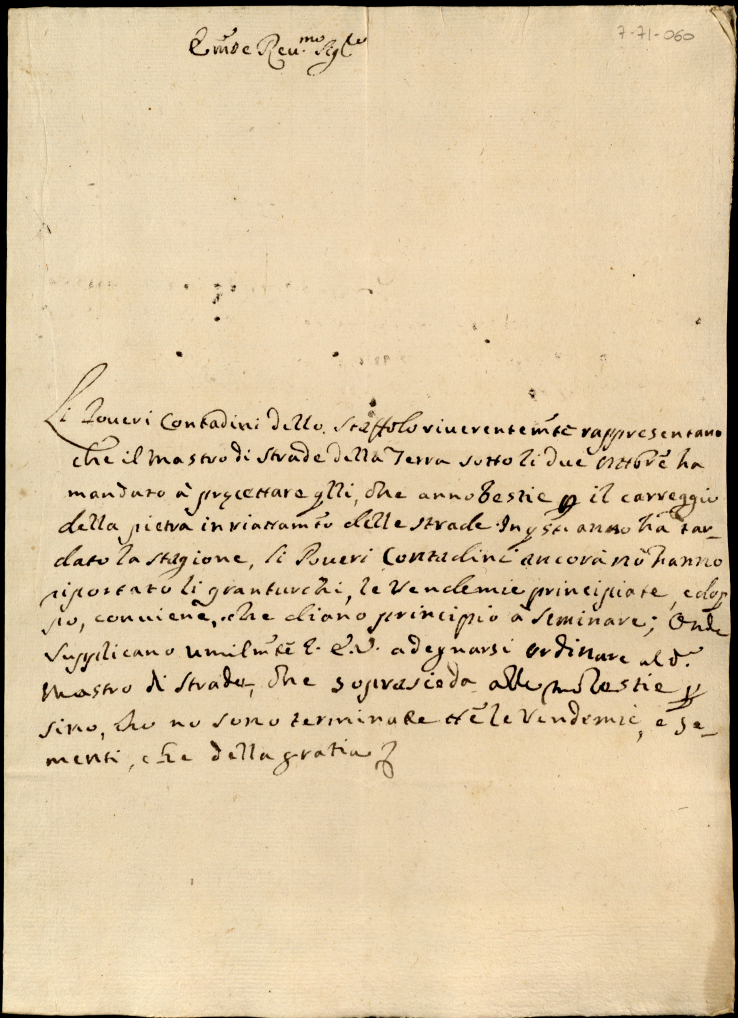 7-71-060
Em̃o e Reu.mo Sig.re
Li Poueri Contadini dello Staffolo riuerentem̃te rappresentano
che il Mastro di strade della Terra sotto li due ottobrẽ ha
mandato à precettare quelli, che anno bestie p il carreggio
della pietra in riattam̃to delle strade. In q̃sti anno ha tar-
dato la stagione, li Poueri Contadini ancora nõ hanno
riportato li granturchi, le Vendemie principiate, e dop
po, conuiene, che diano principio à seminare; Onde
supplicano umilm̃te l' E.V. a degnarsi ordinare al d.o
Mastro di strade, che soprasieda alle molestie p
sino, che no sono terminate ttẽ le Vendemie, e se-
menti, che della gratia